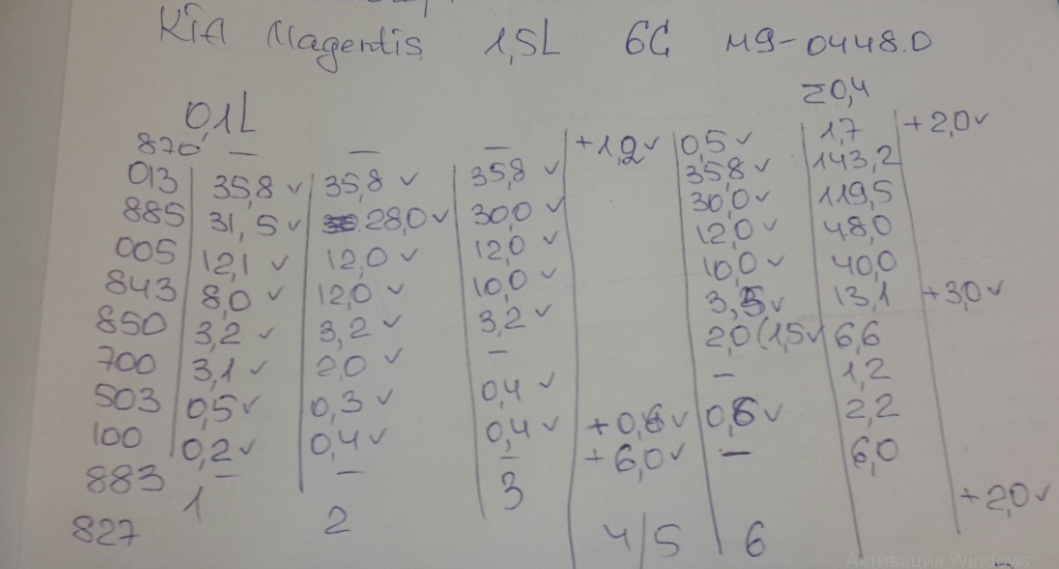 Kia Magentis 1,5L 6C M9-0448.D
0,1L ≥0,4
870 — — — +1,2✓ 0,5✓ 1,7 +2,0✓
013 35,8✓ 35,8✓ 35,8✓ 35,8✓ 143,2
885 31,5✓ 28,0✓ 30,0✓ 30,0✓ 119,5
005 12,1✓ 12,0✓ 12,0✓ 12,0✓ 48,0
843 8,0✓ 12,0✓ 10,0✓ 10,0✓ 40,0
850 3,2✓ 3,2✓ 3,2✓ 3,5✓ 13,1 +3,0✓
700 3,1✓ 2,0✓ — 2,0(1,5✓ 6,6
503 0,5✓ 0,3✓ 0,4✓ — 1,2
100 0,2✓ 0,4✓ 0,4✓ +0,6✓ 0,6✓ 2,2
883 — — — +6,0✓ — 6,0
827 +2,0✓
1 2 3 4/5 6
Активация Windows